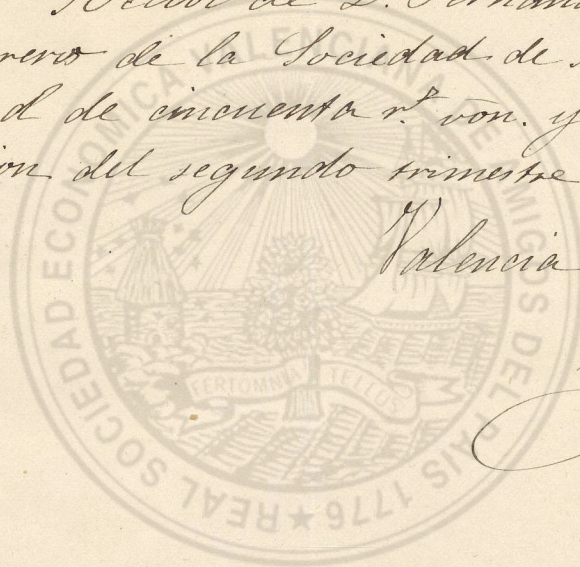 de D. Fernan
rero de la Sociedad de
d de cincuenta r.s von. y
ion del segundo trimestre
Valencia
REAL SOCIEDAD ECONOMICA VALENCIANA DE AMIGOS DEL PAIS 1776 ★
FERT OMNIA TELLUS